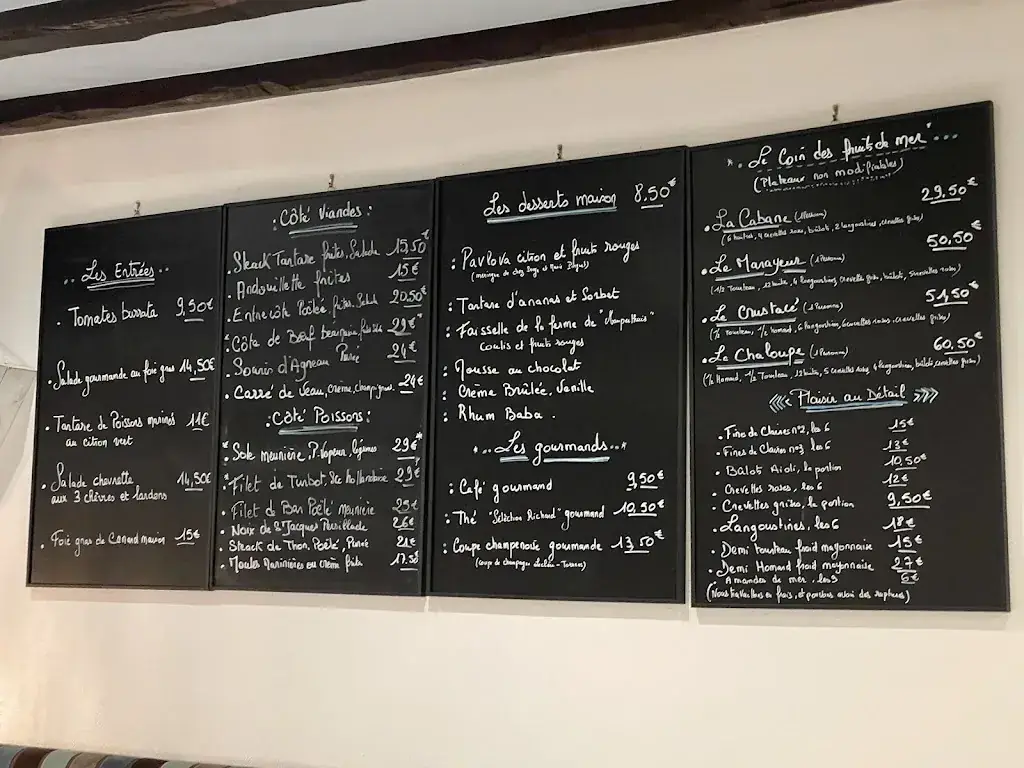 Les Entrées
Tomates burrata 9,50€
Salade gourmande au foie gras 14,50€
Tartare de Poissons marinés 11€
au citron vert
Salade chevrette 14,50€
aux 3 chèvres et lardons
Foie gras de Canard maison 15€
Côté Viandes :
Steack Tartare frites, Salade 15,50€
Andouillette frites 15€
Entrecôte Poêlée, frites, Salade 20,50€
Côte de Bœuf 29€*
Souris d'Agneau Purée 24€
Carré de Veau, crème, champignons 24€
:Côté Poissons:
Sole meunière, P. Vapeur, légumes 29€*
Filet de Turbot, Sce Hollandaise 29€
Filet de Bar Poêlé meunière 25€
Noix de St Jacques Persillade 26€
Steack de Thon, Poêlé, Purée 21€
Moules Marinières ou crème frites 17.50
Les desserts maison 8.50€
: Pavlova citron et fruits rouges
: Tartare d'ananas et Sorbet
: Faisselle de la ferme de
Coulis et fruits rouges
: Mousse au chocolat
: Crème Brûlée, Vanille
: Rhum Baba.
Les gourmands
: Café gourmand 9,50€
: Thé "Sélection Richard" gourmand 10,50€
: Coupe champenoise gourmande 13,50€
(coupe de champagne
Le Coin des fruits de mer
(Plateaux non modifiables)
29,50€
La Cabane (1 Personne)
(6 huîtres, 4 crevettes roses, bulots, 2 langoustines, crevettes grises)
50,50€
Le Mareyeur (1 Personne)
(1/2 Tourteau, 12 huîtres, 4 langoustines, crevettes grises, bulots, 5 crevettes roses)
51,50€
Le Crustacé (1 Personne)
(1/2 Tourteau, 1/2 homard, 6 langoustines, 6 crevettes roses, crevettes grises)
60,50€
La Chaloupe (1 Personne)
(1/2 Homard, 1/2 Tourteau, 12 huîtres, 5 crevettes roses, 4 langoustines, bulots, crevettes grises)
Plaisir au Détail
Fine de Claires n°2, les 6 15€
Fines de Claires n°3, les 6 13€
Bulots Aïoli, la portion 10,50€
Crevettes roses, les 6 12€
Crevettes grises, la portion 9,50€
Langoustines, les 6 18€
Demi tourteau froid mayonnaise 15€
Demi Homard froid mayonnaise 27€
Amandes de mer, les 3 6€
(Nous travaillons en frais, et pouvons avoir des ruptures)